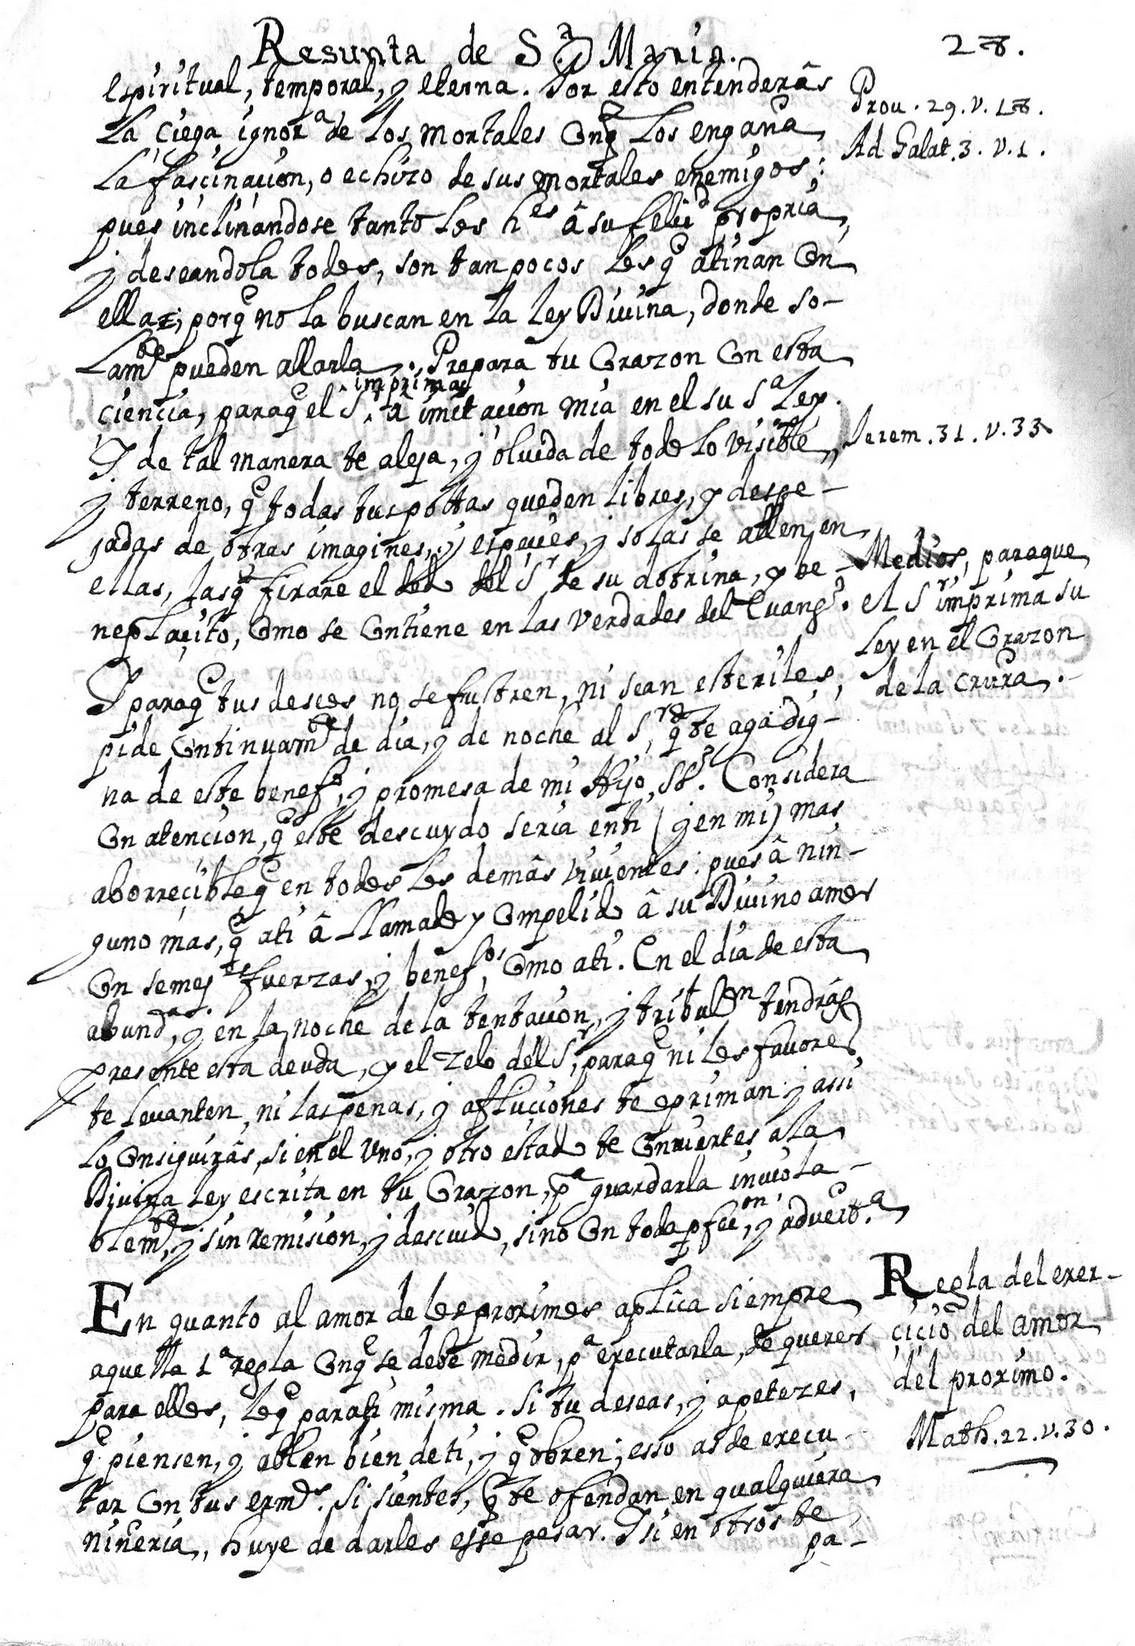 Resunta de Sta Maria.
28.
espiritual, temporal, y eterna. Por esto entenderâs
La ciega ignora de los mortales Conq Los engaña
La fascinacion, o echizo de sus mortales enemigos:
pues inclinandose tanto Los hes â su felicd propria,
y deseandola todos, son tan pocos Los q atinan Con
ella; porq no la buscan en la Ley Divina, donde so-
Lamte pueden allarla. Prepara tu Corazon Con esta
ciencia, paraq el Sr imprima â imitacion mia en el su Sta Ley.
Y de tal manera te aleja, y olvida de todo lo visible,
y terreno, q todas tus pottas queden libres, y despe-
jadas de otras imagines, y espacies, y solas se allen en
ellas, las q firare el del Sr de su dotrina, y be-
neplacito, Como se Contiene en las verdades del Evango.
Y paraq tus deseos no se fustren, ni sean esteriles,
pide Continuamte de dia, y de noche al Sr, q te aga dig-
na de este benefo, y promesa de mi Hijo SSo. Considera
Con atencion, q este descuydo seria en ti (y en mi) mas
aborrecible q en todos Los demâs vivientes: pues â nin-
guno mas, q ati â LLamado y Compelido â su Divino amor
Con semejtes fuerzas, y benefos, Como ati. En el dia de esta
abunda, y en la noche de la tentacion, y tribulon tendrâs
presente esta deuda, y el zelo del Sr, paraq ni Los favores
te levanten, ni las penas, y afliciones te opriman: y assi
Lo Consiguirâs, si en el Uno, y otro estado te Conviertes a La
Divina Ley escrita en tu Corazon, pa guardarla inviola-
blemte, y sin remision, y descuido, sino Con toda pfecon, y adverta.
En quanto al amor de Los proximos aplica siempre
aquella 1a regla Conq se debe medir, pa executarla, de querer
para ellos, Lo q parati misma. Si tu deseas, y apetezes,
q piensen, y ablen bien de ti, y q obren; esso as de execu-
tar Con tus ermos. Si sientes, q te ofendan en qualquiera
niñeria, huye de darles esse pesar. Y si en otros te
pa-
Prou. 29. v. 18.
Ad Galat. 3. v. 1.
Jerem. 31. v. 33.
Medios, paraque
el Sr imprima su
Ley en el Corazon
de la crura.
Regla del exer-
cicio del amor
del proximo.
Math. 22. v. 30.